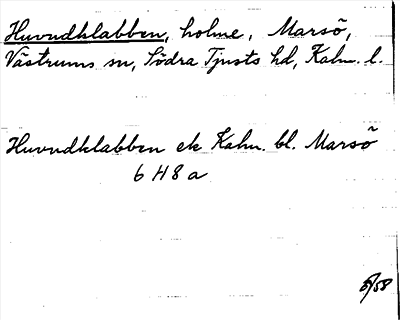 Huvudklabben, holme, Marsö,
Västrums sn, Södra Tjusts hd, Kalm. l.
Huvudklabben ek Kalm. bl. Marsö
6 H 8 a
5/58